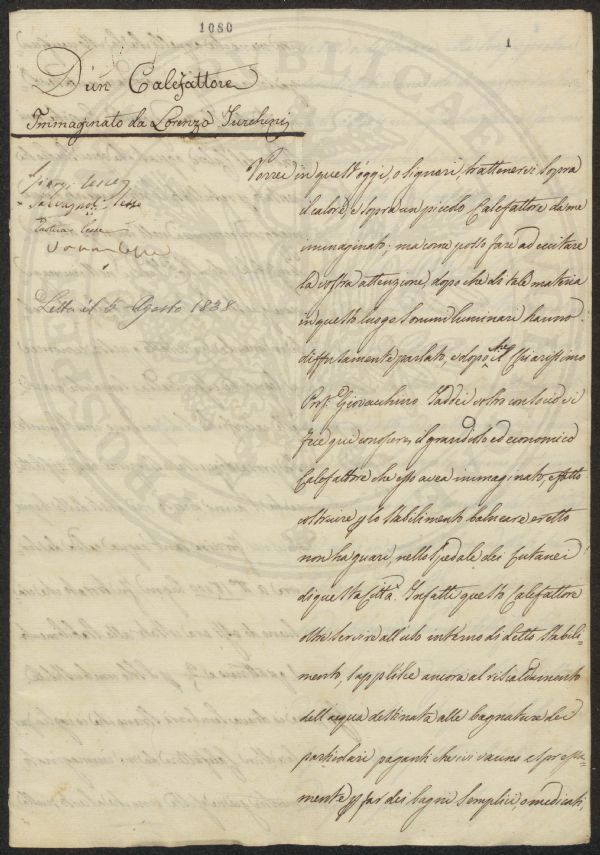 1080
1
D'un Calefattore
Immaginato da Lorenzo Turchini
Vorrei in quest'oggi, o signori, trattenervi sopra
il calore, e sopra un piccolo Calefattore da me
immaginato: ma come posso fare ad eccitare
la vostra attenzione, dopo che di tale materia
in questo luogo sommi luminari hanno
diffusamente parlato, e dopo che il Chiarissimo
Prof. Giovacchino Taddei vostro consocio vi
fece qui conoscere, il grandioso ed economico
Calefattore che esso avea immaginato, e fatto
costruire p lo stabilimento balneare eretto
non ha guari, nello Spedale dei cutanei
di questa Città. Infatti questo Calefattore
oltre servire all'uso interno di detto stabili-
mento, s'applica ancora al riscaldamento
dell'acqua destinata alle bagnature dei
particolari paganti che ivi vanno espressa-
mente p far dei bagni semplici, o medicati,
Salvagnoli lesse
Letto il 5 Agosto 1838